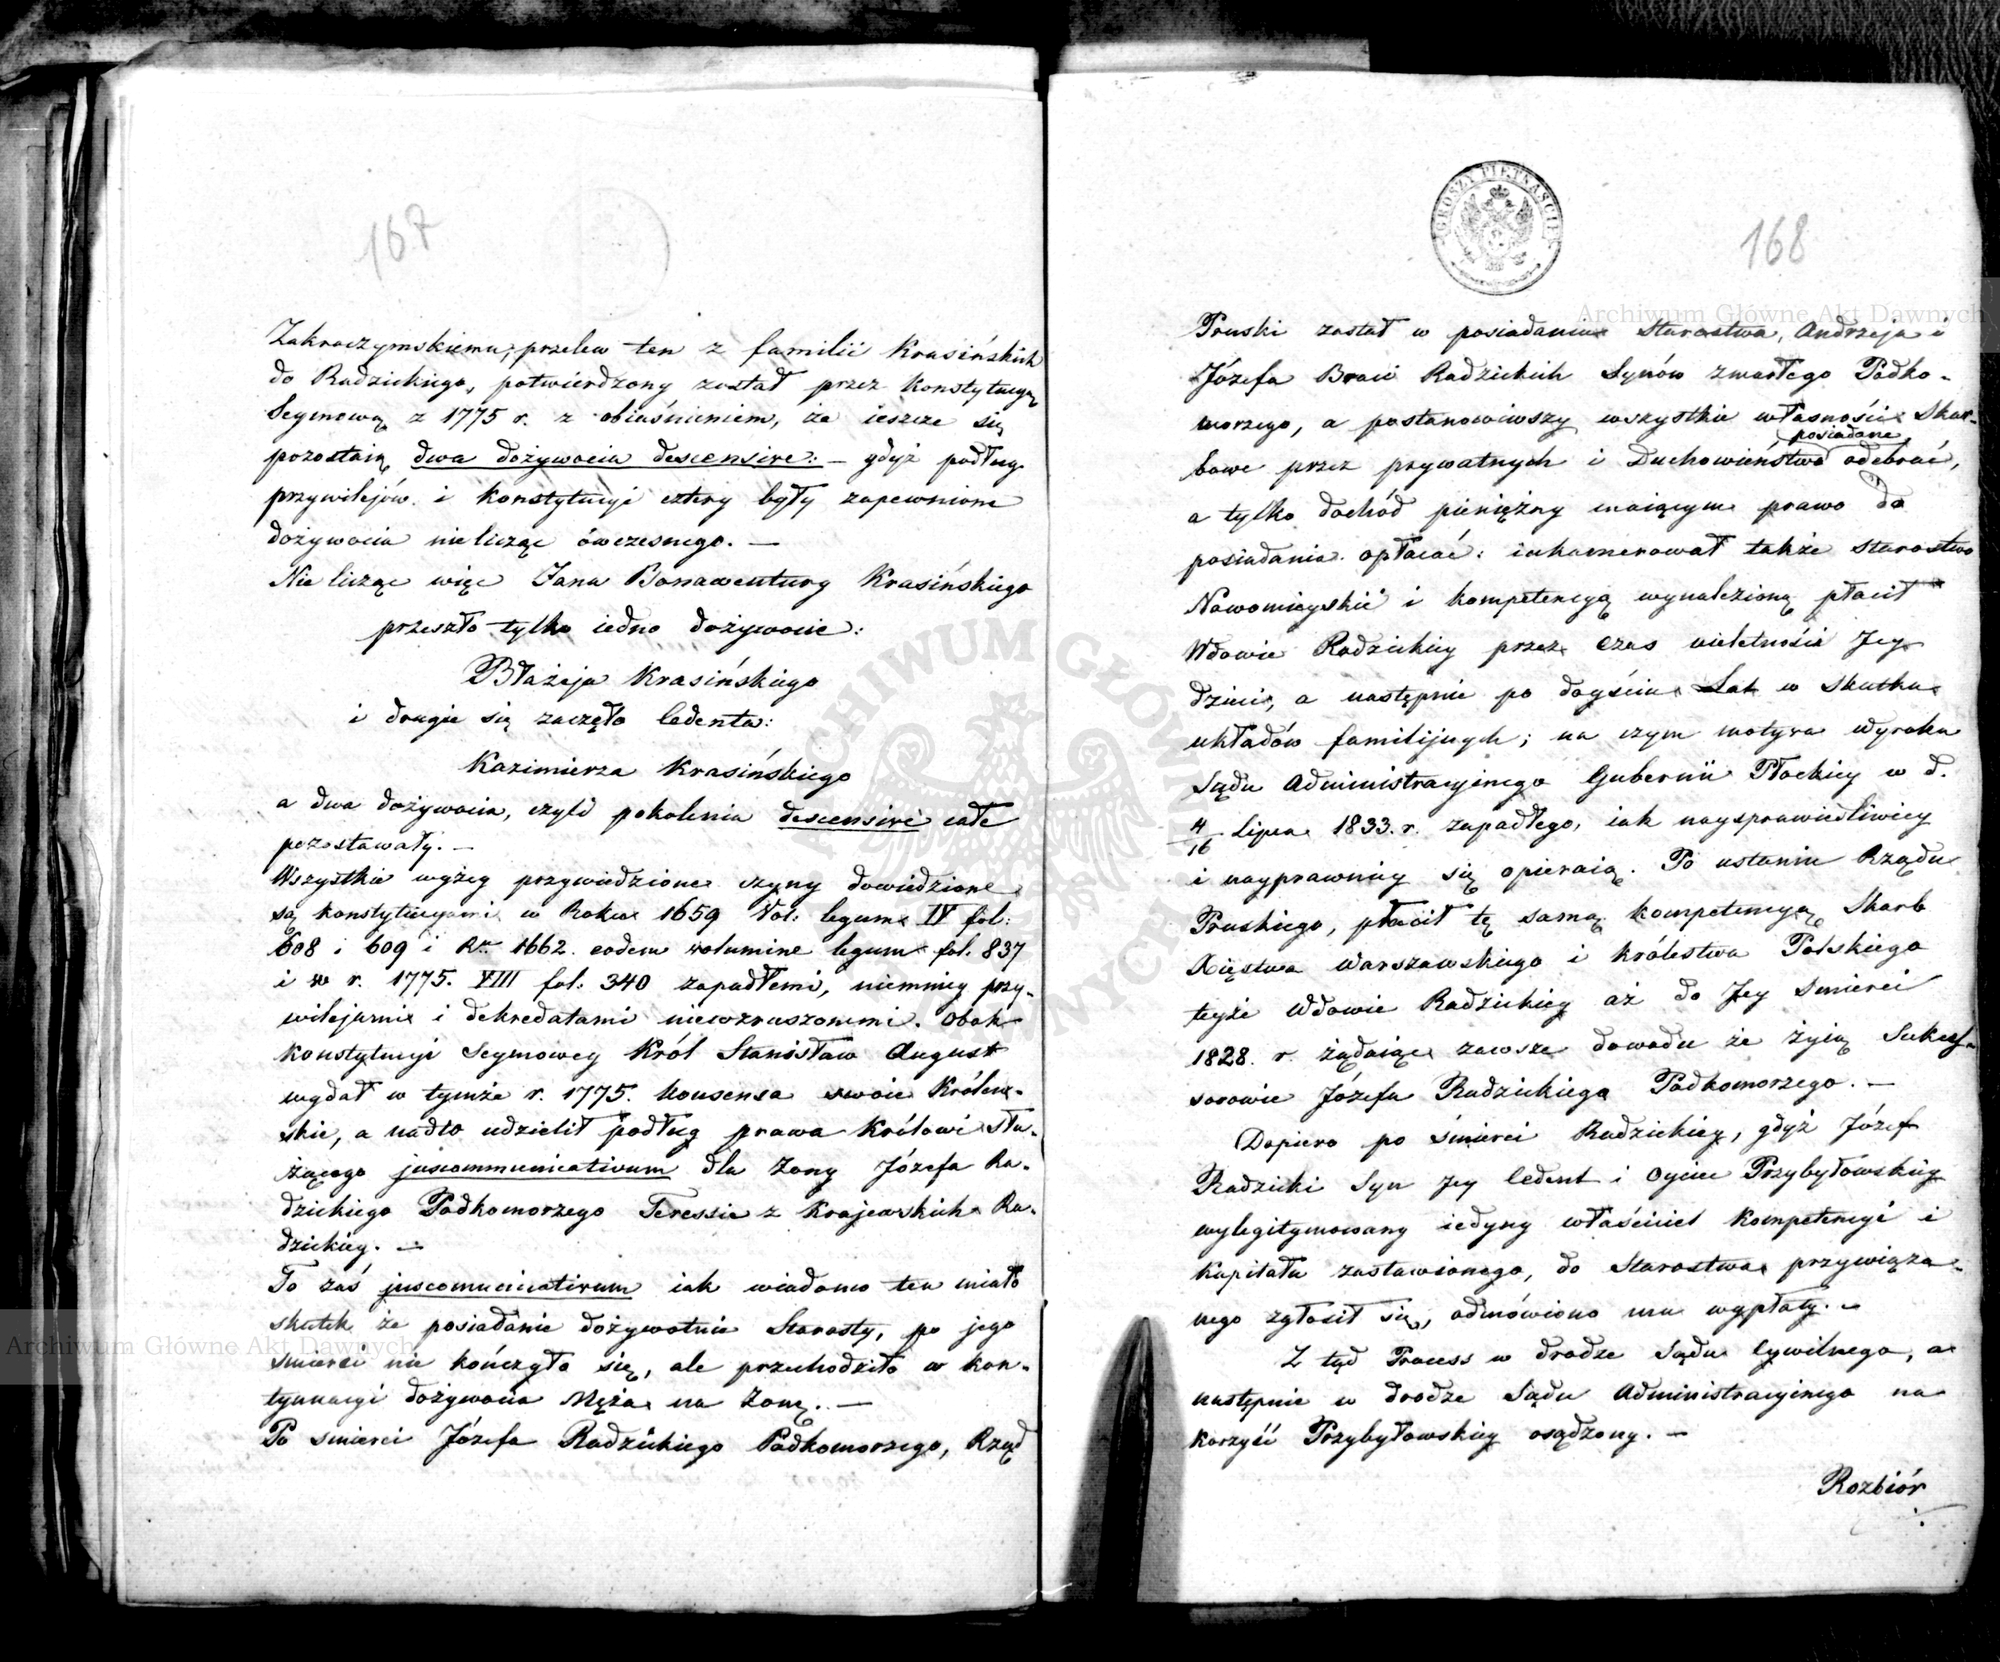 167
Zakroczymskiemu, przelew ten z familii Krasińskich
do Radzickiego, potwierdzony został przez Konstytucyą
Seymową z 1775 r. z obiaśnieniem, że ieszcze się
pozostaią dwa dożywocia descensive: — gdyż podług
przywilejów i Konstytucyi cztery były zapewnione
dożywocia nielicząc ówczesnego. —
Nie licząc więc Jana Bonawentury Krasińskiego
przeszło tylko iedno dożywocie:
Błażeja Krasińskiego
i drugie się zaczęło Cedenta:
Kazimierza Krasińskiego
a dwa dożywocia, czyli pokolenia descensivè całe
pozostawały. —
Wszystkie wyżey przywiedzione czyny dowiedzione
są Konstytucyami w Roku 1659 Vol: legum IV fol:
608 i 609 i Rn 1662. eodem volumine legum fol. 837
i w r. 1775. VIII fol: 340 zapadłemi, niemniey przy-
wilejami i dekredatami niewzruszonemi. Obok
Konstytucyi Seymowey Król Stanisław August
wydał w tymże r. 1775. konsensa swoie Królew-
skie, a nadto udzielił podług prawa Królowi słu-
żącego juscommunicativum dla Żony Józefa Ra-
dzickiego Podkomorzego Teressie z Krajewskich Ra-
dzickiey. —
To zaś juscomunicativum iak wiadomo ten miało
skutek że posiadanie dożywotnie Starosty, po jego
śmierci nie kończyło się, ale przechodziło w kon-
tynuacyi dożywocia Męża na Żonę. —
Po śmierci Józefa Radzickiego Podkomorzego, Rząd
GROSZY PIĘTNAŚCIE
168
Pruski zastał w posiadaniu Starostwa, Andrzeja i
Józefa Braci Radzickich Synów zmarłego Podko-
morzego, a postanowiwszy wszystkie własności Skar-
posiadane
bowe przez prywatnych i Duchowieństwo odebrać,
a tylko dochód pieniężny maiącym prawo do
posiadania opłacać: inkamerował także Starostwo
Nowomieyskie i kompetencyą wynalezioną płacił
Wdowie Radzickiey przez czas nieletności Jey
dzieci, a następnie po doyściu Lat w skutku
układów familijnych; na czym motywa wyroku
Sądu Administracyjnego Gubernii Płockiey w d.
4/16 Lipca 1833. r. zapadłego, iak naysprawiedliwiey
i nayprawniey się opieraią. Po ustaniu Rządu
Pruskiego, płacił tę samą kompetencyą Skarb
Xięstwa Warszawskiego i Królestwa Polskiego
teyże Wdowie Radzickiey aż do Jey śmierci
1828. r. żądaiąc zawsze dowodu że żyią Sukces-
sorowie Józefa Radzickiego Podkomorzego. —
Dopiero po śmierci Radzickiey, gdyż Józef
Radzicki Syn Jey Cedent i Oyciec Przybyłowskiey
wylegitymowany iedyny właściciel kompetencyi i
Kapitału zastawionego, do Starostwa przywiąza-
nego zgłosił się, odmówiono mu wypłaty. —
Z tąd Process w drodze Sądu Cywilnego, a
następnie w drodze Sądu Administracyjnego na
korzyść Przybyłowskiey osądzony. —
Rozbiór
Archiwum Główne Akt Dawnych
Archiwum Główne Akt Dawnych